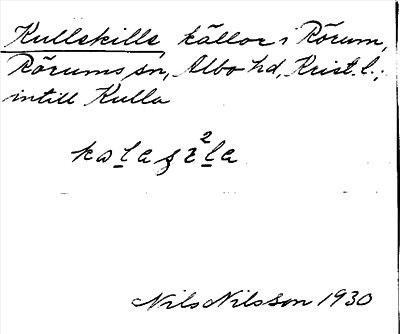 Kullakilla källor i Rörum,
Rörums sn, Albo hd, Krist. l.;
intill Kulla
Nils Nilsson 1930